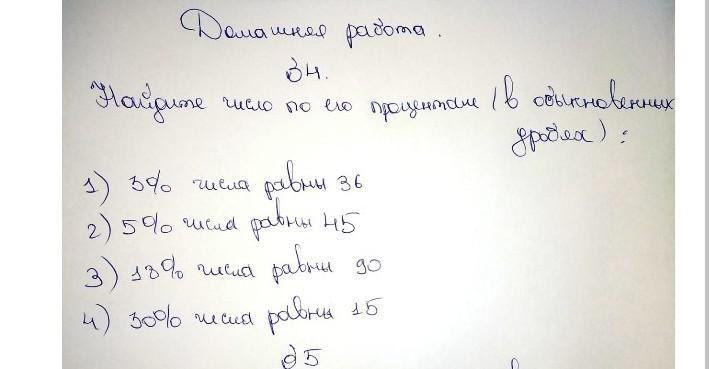 Домашняя работа.
№4.
Найдите число по его процентам (в обыкновенных
дробях):
1) 3% числа равны 36
2) 5% числа равны 45
3) 18% числа равны 90
4) 30% числа равны 15
№5